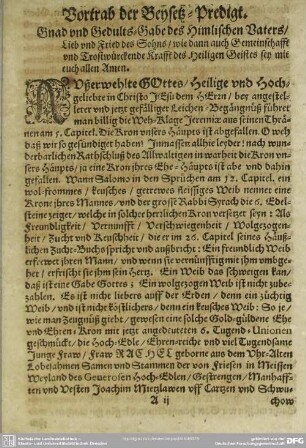 Vortrab der Beysetz-Predigt.
Gnad vnd Gedults-Gabe des Himlischen Vaters/
Lieb vnd Fried des Sohns/ wie dann auch Gemeinschafft
vnd Trostwürckende Krafft des Heiligen Geistes sey mit
euch allen Amen.
AVßerwehlte GOttes/ Heilige vnd Hoch-
geliebte in Christo JEsu dem HErrn/ bey angestel-
leter vnd jetzt gefälliger Leichen Begängnüß führet
man billig die Weh-Klage Jeremiæ aus seinen Thrä-
nen am 5. Capitel. Die Kron vnsers Häupts ist abgefallen. O weh
daß wir so gesündiget haben! Jnmassen allhie leyder! nach wun-
derbarlichen Rathschluß des Allwaltigen in warheit die Kron vn-
sers Häupts/ ja eine Kron jhres Ehe-Häupts ist abe vnd dahin
gefallen. Wann Salomo in den Sprüchen am 12. Capitel. ein
wol-frommes/ keusches/ getrewes fleissiges Weib nennet eine
Krone jhres Mannes/ vnd der grosse Rabbi Syrach die 6. Edel-
steine zeiget/ welche in solche herrlichen Kron versetzet seyn: Als
Freundligkeit/ Vernunfft/ Verschwiegenheit/ Wolgezogen-
heit/ Zucht vnd Keuschheit/ da er im 26. Capitel seines Häuß-
lichen Zucht-Buchs spricht vnd außbricht: Ein freundlich Weib
erfrewet jhren Mann/ vnd wenn sie vernünfftig mit jhm vmbge-
het/ erfrischet sie jhm sein Hertz. Ein Weib das schweigen kan/
daß ist eine Gabe Gottes: Ein wolgezogen Weib ist nicht zube-
zahlen. Es ist nicht liebers auff der Erden/ denn ein züchtig
Weib/ vnd ist nicht köstlichers/ denn ein keusches Weib: So je/
wie man Zeugnüß giebt/ gewesen eine solche Gold-güldene Ehe
vnd Ehren Kron mit jetzt angedeuteten 6. Tugend-Unionen
geschmückt/ die Hoch-Edle/ Ehren-reiche vnd viel Tugendsame
Junge Fraw/ Fraw RACHEL geborne aus dem Vhr-Alten
Lobesahmen Samen vnd Stammen der von Friesen in Meissen
Weyland des Hoch-Edlen/ Gestrengen/ Manhaff-
ten vnd Vesten Joachim Mietzlawen vff Cartzen vnd Schwu-
A ij
chow